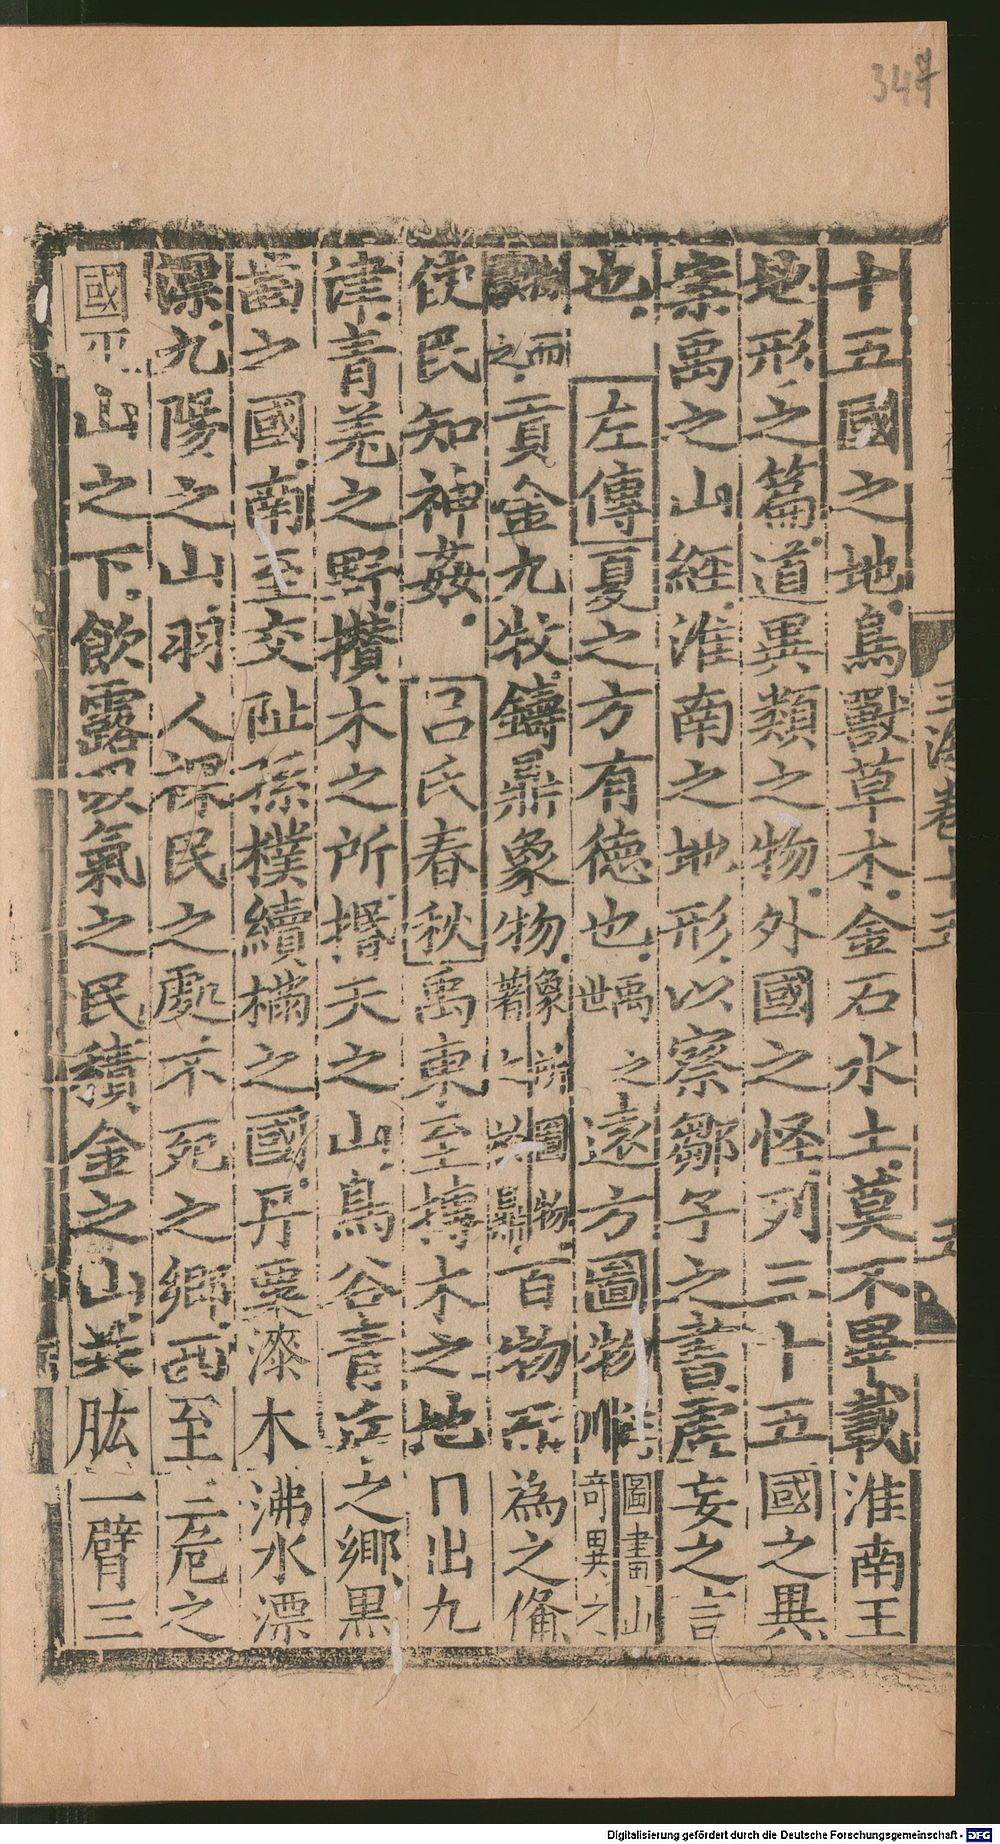 347
十五國之地鳥獸草木金石水土莫不畢載淮南王
地形之篇道異類之物外國之怪列三十五國之異
案禹之山經淮南之地形以察鄒子之書虛妄之言
也 左傳夏之方有德也禹之世遠方圖物圖畫山奇異之
而之貢金九牧鑄鼎象物象所圖物著之於鼎百物而為之備
使民知神姦 呂氏春秋禹東至榑木之地日出九
津青羌之野攢木之所㨉天之山鳥谷青丘之鄉黑
齒之國南至交阯孫樸續樠之國丹粟漆木沸水漂
漂九陽之山羽人裸民之處不死之鄉西至三危之
國巫山之下飲露吸氣之民積金之山共肱一臂三
玉海卷十五
五
Digitalisierung gefördert durch die Deutsche Forschungsgemeinschaft - DFG